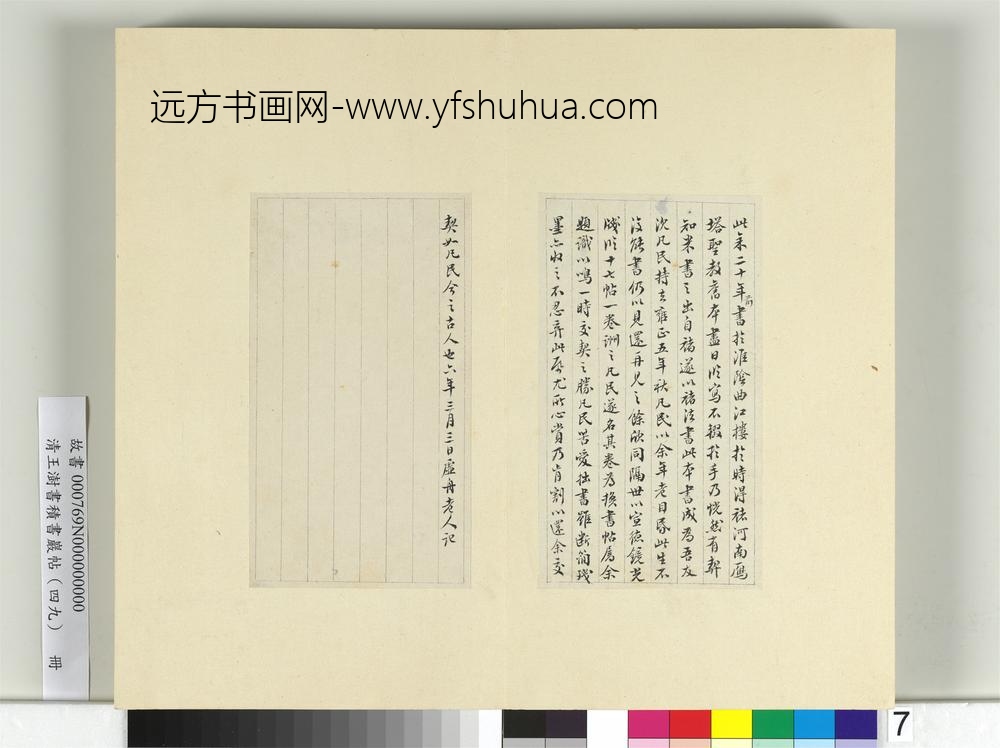 远方书画网-www.yfshuhua.com
此余二十年前書於淮陰曲江樓於時得褚河南鴈
塔聖教舊本盡日臨寫不輟於手乃恍然有契
知米書之出自褚遂以褚法書此本書成為吾友
沈凡民持去雍正五年秋凡民以余年老目 此生不
復能書仍以見還再見之餘欣同隔世以宣德鏡光
牋臨十七帖一卷詶之凡民遂名其卷為換書帖屬余
題識以鳴一時交契之勝凡民苦愛拙書雖斷 殘
墨亦收之不忍棄此 尤所心賞乃肯割以還余交
契如凡民今之古人也六年三月三日虛舟老人記
故書 000769N000000000
清王澍書積書巖帖（四九） 冊
7